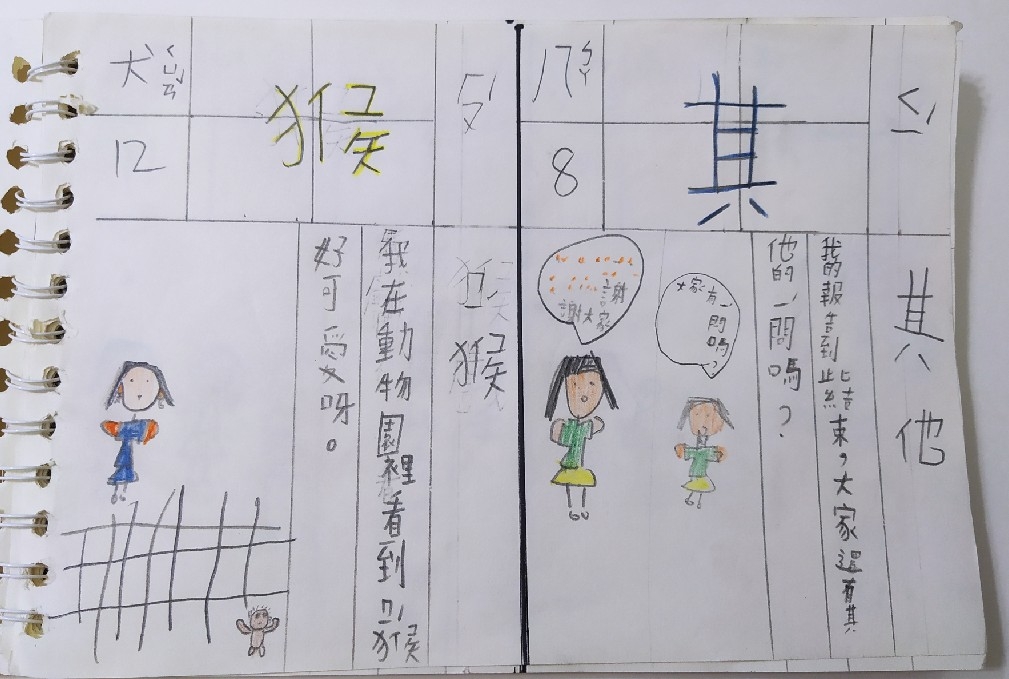 ㄑㄧˊ
其
八ㄅㄚ
8
其他
我的報告到此結束,大家還有其
他的ㄧˊ問嗎?
大家有ㄧˊ
問嗎?
謝
謝大家
ㄏㄡˊ
猴
犬ㄑㄩㄢˇ
12
猴
我在動物園裡看到猴
好可愛呀。